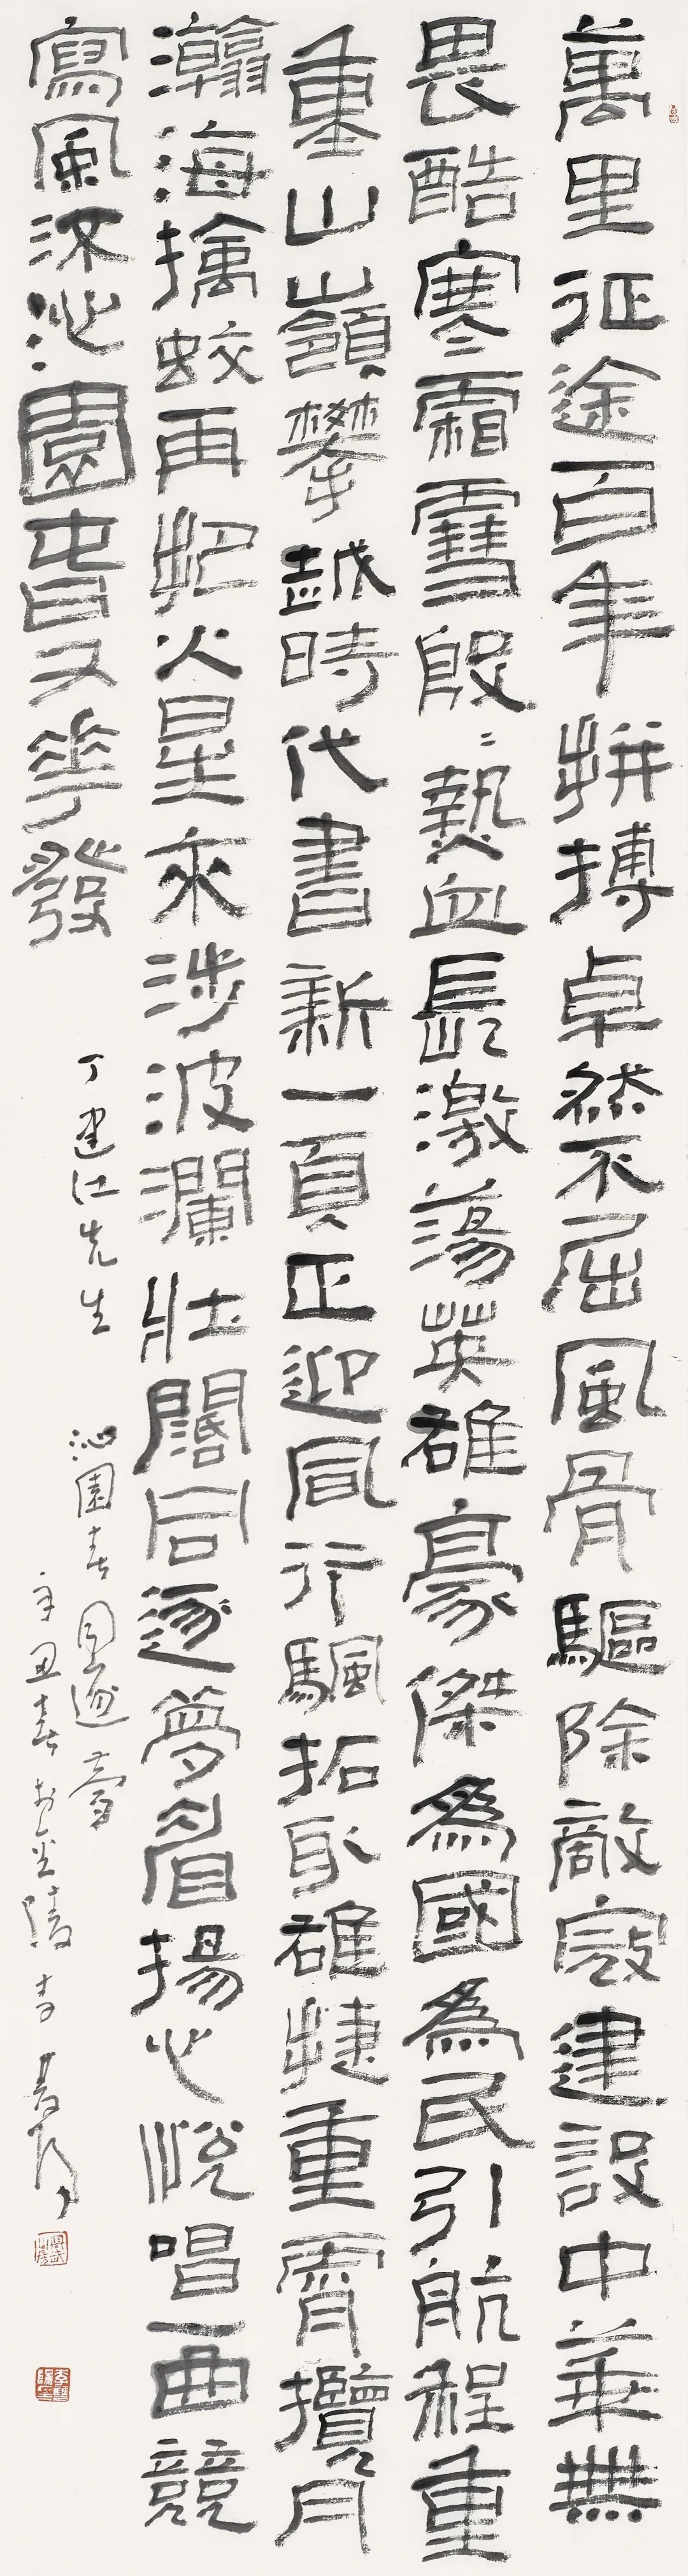 萬里征途百年拼搏卓然不屈風骨驅除敵寇建設中華無
畏酷寒霜雪殷〻熱血長激蕩英雄豪傑爲國爲民引航程重
重山嶺攀越時代書新一頁正迎風行颿拓取雄捷重霄攬月
瀚海擒蛟再把火星來涉波瀾壯闊同逐夢眉揚心悅唱一曲競
寫風流沁園春又華發
丁建江先生 沁園春 同逐夢
辛丑春於金陵 李